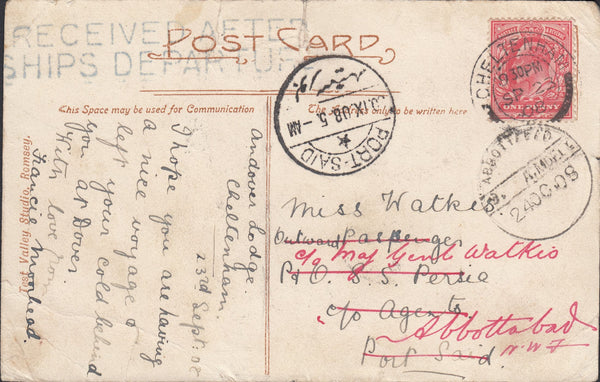 RECEIVED AFTER
SHIPS DEPARTURE
POST CARD
This Space may be used for Communication
only to be written here
Andover Lodge.
Cheltenham.
23rd Sept. 08
I hope you are having
a nice voyage &
left your cold behind
you at Dover.
With love from
Francie Morehead.
Test Valley Studio, Romsey.
PORT-SAID
IX 08 5 - AM
CHELTENHAM
ONE PENNY
ABBOTTABAD
24 OC 08
Miss Watkis
Outward Passenger
c/o Maj Genl Watkis
P & O. S. S. Persia
c/o Agents
Abbottabad
Port Said
N W F